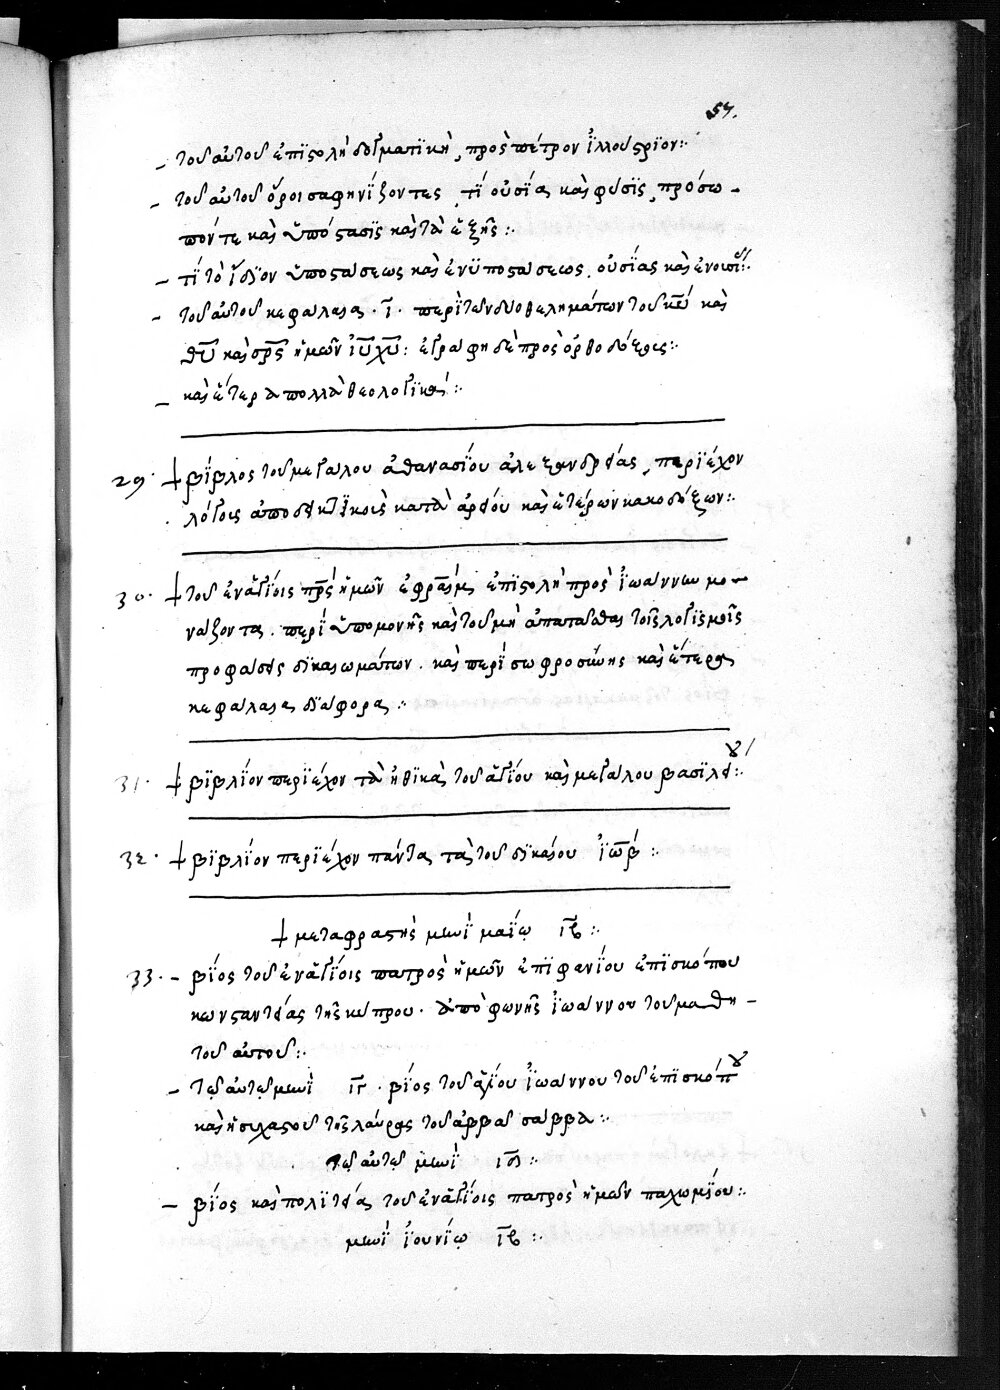 57.
– τοῦ αὐτοῦ ἐπϊστολὴ δογματϊκὴ, πρὸς πέτρον ἰλλούστριον:
– τοῦ αὐτοῦ ὅροι σαφηνίζοντες, τί οὐσία καὶ φύσϊς, πρόσω –
πόν τε καὶ ὑπόστασϊς καὶ τὰ ἑξῆς:
– τί τὸ ἴδϊον ὑποστάσεως καὶ ἐνϋποστάσεως, οὐσίας καὶ ἐνουσίου:
– τοῦ αὐτοῦ κεφάλαια · ι̅ · περὶ τῶν δύο θελημάτων τοῦ κ̅υ̅ καὶ
θ̅υ̅ καὶ σ̅ρ̅ς̅ ἡμῶν ἰ̅υ̅ χ̅υ̅: ἐγράφη δὲ πρὸς ὀρθοδόξους:
– καὶ ἕτερα πολλὰ θεολογϊκά:
29· † βίβλος τοῦ μεγάλου ἀθανασίου ἀλεξανδρείας, περϊέχον
λόγοις ἀποδεικτϊκοῖς κατὰ ἀρείου καὶ ἑτέρων κακοδόξων:
30· † τοῦ ἐν ἁγίοις π̅ρ̅ς̅ ἡμῶν ἐφραὶμ, ἐπϊστολὴ πρὸς ἰωάννην μο –
νάζοντα. περὶ ὑπομονῆς καὶ τοῦ μὴ ἀπατᾶσθαι τοῖς λογϊσμοῖς
προφάσεις δϊκαιωμάτων. καὶ περὶ σωφροσύνης καὶ ἕτερα
κεφάλαια δϊάφορα:
31· † βϊβλίον περϊέχον τὰ ἠθϊκὰ τοῦ ἁγίου καὶ μεγάλου βασϊλείου:
32· † βϊβλίον περϊέχον πάντα τὰ τοῦ δϊκαίου ἰώβ:
† μεταφραστὴς μηνὶ μαΐῳ ι̅β̅:
33· – βίος τοῦ ἐν ἁγίοις πατρὸς ἡμῶν ἐπϊφανίου ἐπϊσκόπου
κωνσταντείας τῆς κύπρου. ἀπὸ φωνῆς ἰωάννου τοῦ μαθη –
τοῦ αὐτοῦ:
– τῷ αὐτῷ μηνὶ ι̅γ̅ · βίος τοῦ ἁγίου ἰωάννου τοῦ ἐπϊσκόπου
καὶ ἡσυχαστοῦ τῆς λαύρας τοῦ ἀββᾶ σάββα:
τῷ αὐτῷ μηνὶ
– βίος καὶ πολϊτεία τοῦ ἐν ἁγίοις πατρὸς ἡμῶν παχωμίου:
μηνὶ ἰουνίῳ ι̅β̅: